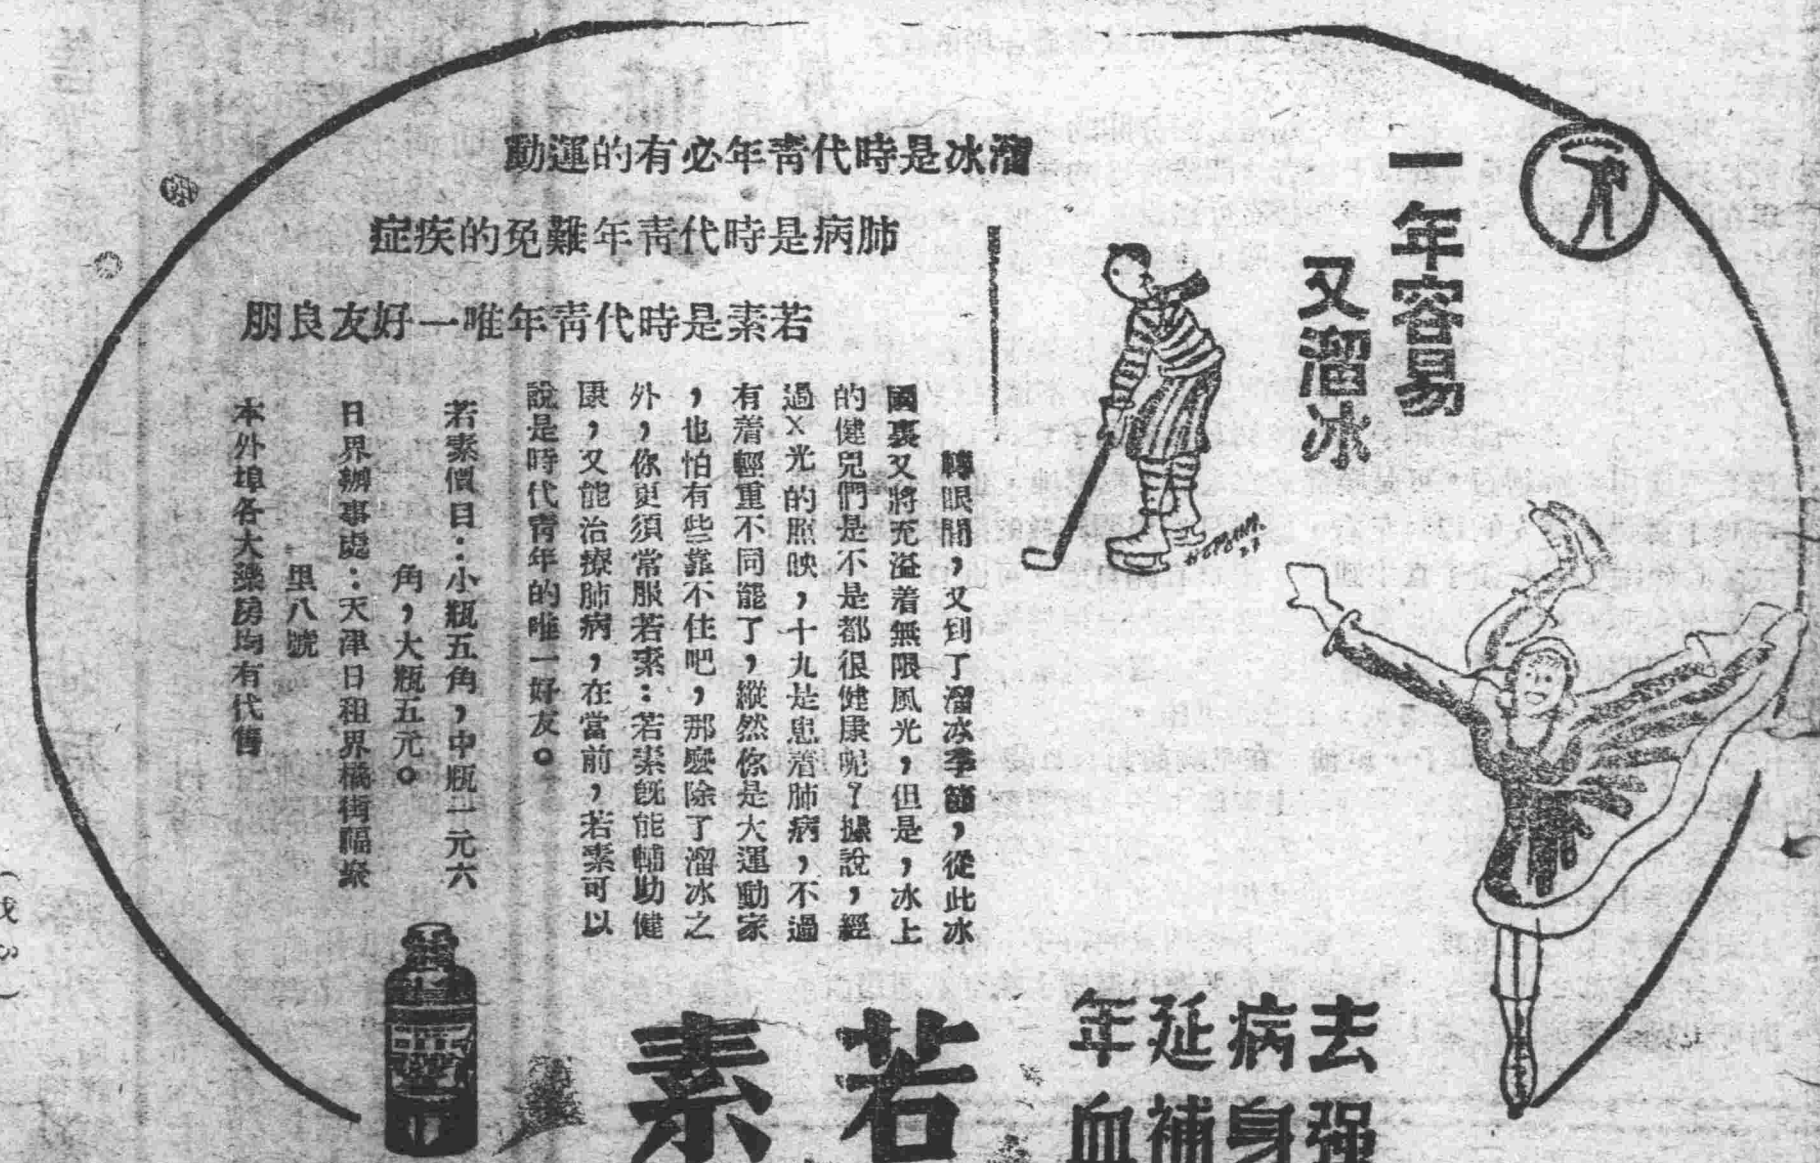 一年容易
又溜冰
溜冰是時代青年必有的運動
肺病是時代青年難免的疾症
若素是時代青年唯一好友良朋
轉眼間，又到了溜冰季節，從此冰
國裏又將充溢着無限風光，但是，冰上
的健兒們是不是都很健康呢？據說，經
過X光的照映，十九是患着肺病，不過
有着輕重不同罷了，縱然你是大運動家
，也怕有些靠不住吧，那麼除了溜冰之
外，你更須常服若素：若素既能輔助健
康，又能治療肺病，在當前，若素可以
說是時代青年的唯一好友。
若素價目：小瓶五角，中瓶一元六
角，大瓶五元。
日界辦事處：天津日租界橘街福聚
里八號
本外埠各大藥房均有代售
去病延年
强身補血
若素